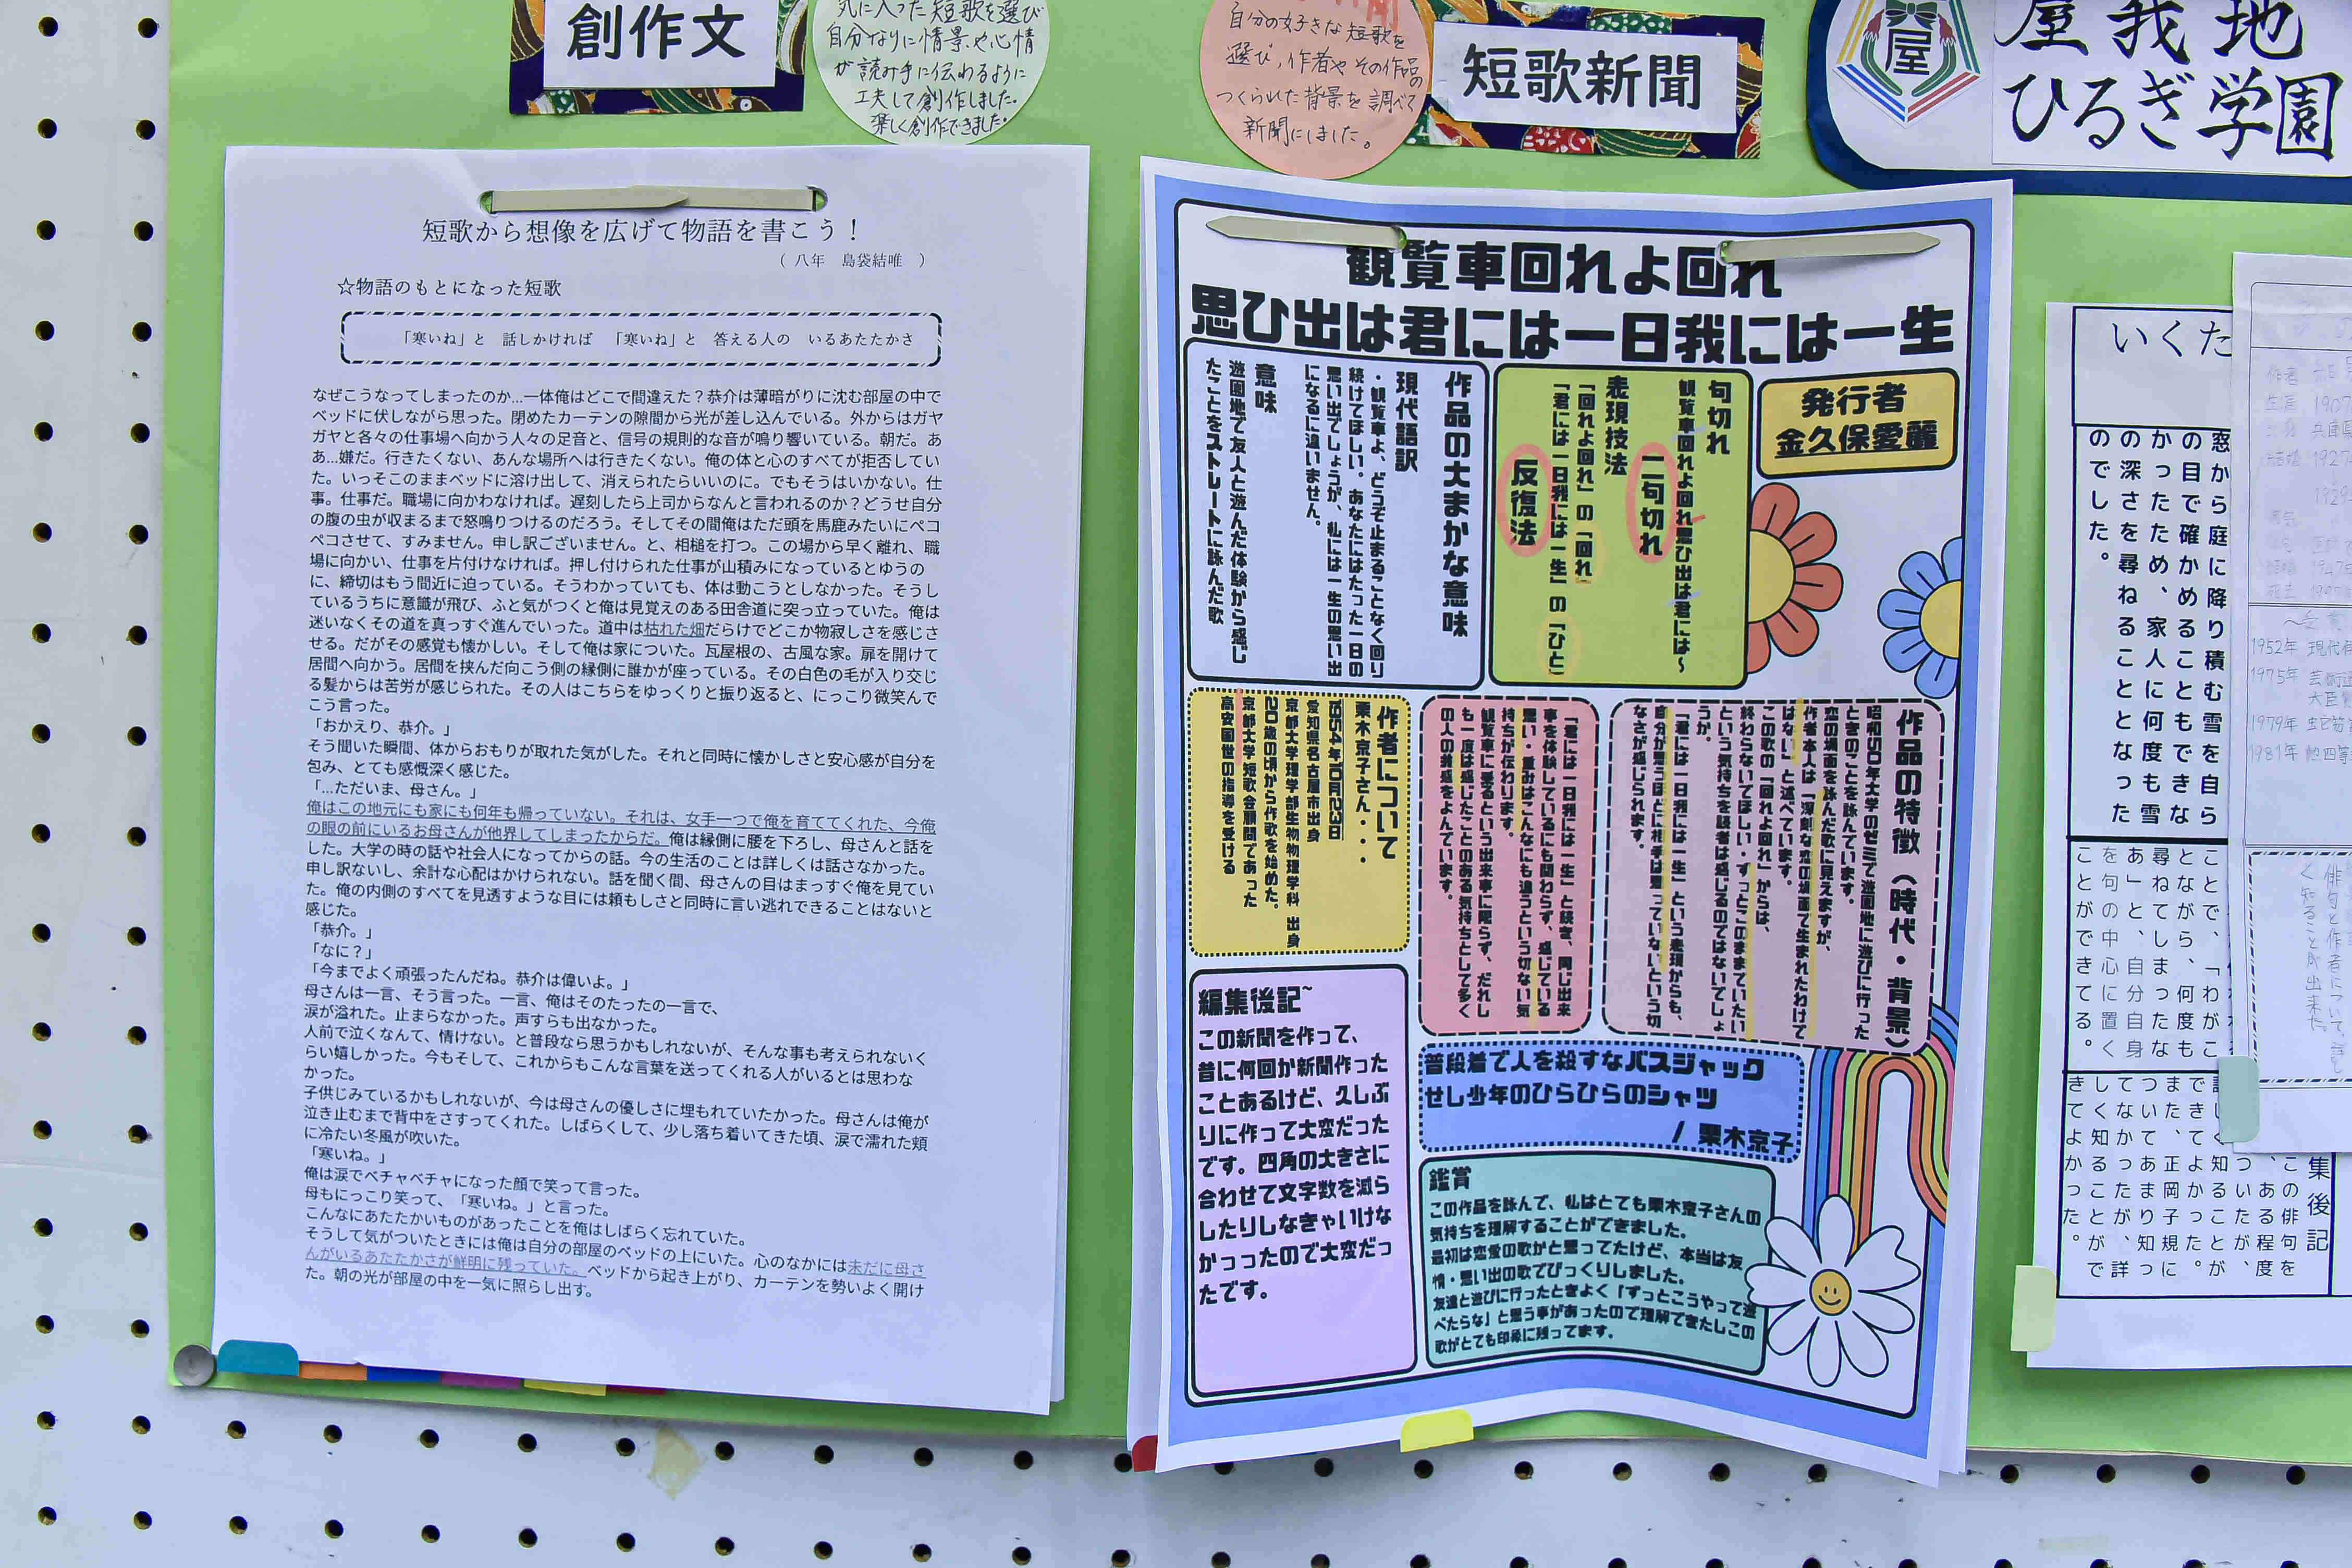 創作文
気に入った短歌を選び
自分なりに情景や心情
が読み手に伝わるように
工夫して創作しました。
楽しく創作できました。
自分の好きな短歌を
選び，作者やその作品の
つくられた背景を調べて
新聞にしました。
短歌新聞
屋
屋我地
ひるぎ学園
短歌から想像を広げて物語を書こう！
（ 八年　島袋結唯　）
☆物語のもとになった短歌
「寒いね」と　話しかければ　「寒いね」と　答える人の　いるあたたかさ
なぜこうなってしまったのか…一体俺はどこで間違えた？恭介は薄暗がりに沈む部屋の中で
ベッドに伏しながら思った。閉めたカーテンの隙間から光が差し込んでいる。外からはガヤ
ガヤと各々の仕事場へ向かう人々の足音と、信号の規則的な音が鳴り響いている。朝だ。あ
あ…嫌だ。行きたくない、あんな場所へは行きたくない。俺の体と心のすべてが拒否してい
た。いっそこのままベッドに溶け出して、消えられたらいいのに。でもそうはいかない。仕
事。仕事だ。職場に向かわなければ。遅刻したら上司からなんと言われるのか？どうせ自分
の腹の虫が収まるまで怒鳴りつけるのだろう。そしてその間俺はただ頭を馬鹿みたいにペコ
ペコさせて、すみません。申し訳ございません。と、相槌を打つ。この場から早く離れ、職
場に向かい、仕事を片付けなければ。押し付けられた仕事が山積みになっているとゆうの
に、締切はもう間近に迫っている。そうわかっていても、体は動こうとしなかった。そうし
ているうちに意識が飛び、ふと気がつくと俺は見覚えのある田舎道に突っ立っていた。俺は
迷いなくその道を真っすぐ進んでいった。道中は枯れた畑だらけでどこか物寂しさを感じさ
せる。だがその感覚も懐かしい。そして俺は家についた。瓦屋根の、古風な家。扉を開けて
居間へ向かう。居間を挟んだ向こう側の縁側に誰かが座っている。その白色の毛が入り交じ
る髪からは苦労が感じられた。その人はこちらをゆっくりと振り返ると、にっこり微笑んで
こう言った。
「おかえり、恭介。」
そう聞いた瞬間、体からおもりが取れた気がした。それと同時に懐かしさと安心感が自分を
包み、とても感慨深く感じた。
「…ただいま、母さん。」
俺はこの地元にも家にも何年も帰っていない。それは、女手一つで俺を育ててくれた、今俺
の眼の前にいるお母さんが他界してしまったからだ。俺は縁側に腰を下ろし、母さんと話を
した。大学の時の話や社会人になってからの話。今の生活のことは詳しくは話さなかった。
申し訳ないし、余計な心配はかけられない。話を聞く間、母さんの目はまっすぐ俺を見てい
た。俺の内側のすべてを見透すような目には頼もしさと同時に言い逃れできることはないと
感じた。
「恭介。」
「なに？」
「今までよく頑張ったんだね。恭介は偉いよ。」
母さんは一言、そう言った。一言、俺はそのたったの一言で、
涙が溢れた。止まらなかった。声すらも出なかった。
人前で泣くなんて、情けない。と普段なら思うかもしれないが、そんな事も考えられないく
らい嬉しかった。今もそして、これからもこんな言葉を送ってくれる人がいるとは思わな
かった。
子供じみているかもしれないが、今は母さんの優しさに埋もれていたかった。母さんは俺が
泣き止むまで背中をさすってくれた。しばらくして、少し落ち着いてきた頃、涙で濡れた頬
に冷たい冬風が吹いた。
「寒いね。」
俺は涙でベチャベチャになった顔で笑って言った。
母もにっこり笑って、「寒いね。」と言った。
こんなにあたたかいものがあったことを俺はしばらく忘れていた。
そうして気がついたときには俺は自分の部屋のベッドの上にいた。心のなかには未だに母さ
んがいるあたたかさが鮮明に残っていた。ベッドから起き上がり、カーテンを勢いよく開け
た。朝の光が部屋の中を一気に照らし出す。
観覧車回れよ回れ
思ひ出は君には一日我には一生
発行者
金久保愛麗
句切れ
観覧車回れよ回れ思ひ出は君には～
二句切れ
表現技法
「回れよ回れ」の「回れ」
「君には一日我には一生」の「ひと」
反復法
作品の大まかな意味
現代語訳
・観覧車よ、どうぞ止まることなく回り
続けてほしい。あなたにはたった一日の
思い出でしょうが、私には一生の思い出
になるに違いません。
意味
遊園地で友人と遊んだ体験から感じ
たことをストレートに詠んだ歌
作品の特徴（時代・背景）
昭和50年大学のゼミで遊園地に遊びに行った
ときのことを詠んでいます。
恋の場面を詠んだ歌に見えますが、
作者本人は「深刻な恋の場面で生まれたわけで
はない」と述べています。
この歌の「回れよ回れ」からは、
終わらないでほしい・ずっとこのままでいたい
という気持ちを読者は感じるのではないでしょ
うか。
「君には一日我には一生」という表現からも、
自分が思うほどに相手は思っていないという切
なさが感じられます。
「君には一日我には一生」と続き、同じ出来
事を体験しているにも関わらず、感じている
思い・重みはこんなにも違うという切ない気
持ちが伝わります。
観覧車に乗るという出来事に限らず、だれし
も一度は感じたことのある気持ちとして多く
の人の共感をよんでいます。
作者について
栗木京子さん・・・
1954年10月23日
愛知県名古屋市出身
京都大学理学部生物物理学科 出身
20歳の頃から作歌を始めた。
京都大学短歌会顧問であった
高安国世の指導を受ける
編集後記~
この新聞を作って、
昔に何回か新聞作った
ことあるけど、久しぶ
りに作って大変だった
です。四角の大きさに
合わせて文字数を減ら
したりしなきゃいけな
かっったので大変だっ
たです。
普段着で人を殺すなバスジャック
せし少年のひらひらのシャツ
/ 栗木京子
鑑賞
この作品を詠んで、私はとても栗木京子さんの
気持ちを理解することができました。
最初は恋愛の歌かと思ってたけど、本当は友
情・思い出の歌でびっくりしました。
友達と遊びに行ったときよく「ずっとこうやって遊
べたらな」と思う事があったので理解できたしこの
歌がとても印象に残ってます。
いくた
窓から庭に降り積む雪を自ら
の目で確かめることもできな
かったため、家人に何度も雪
の深さを尋ねることとなった
のでした。
ことで、「わがこ
となら、何度も
尋ねてしまったな
あ」と、自分自身
を句の中心に置く
ことができてる。
集後記
この俳句を
、ある程度
ついたが、
知ることが
できてよかった。
また、正岡子規に
ついてあまり知っ
てなかったが、詳
しく知ることがで
きてよかった。
1952年 現代
1975年 芸術
大臣
1979年
1981年 勲四等